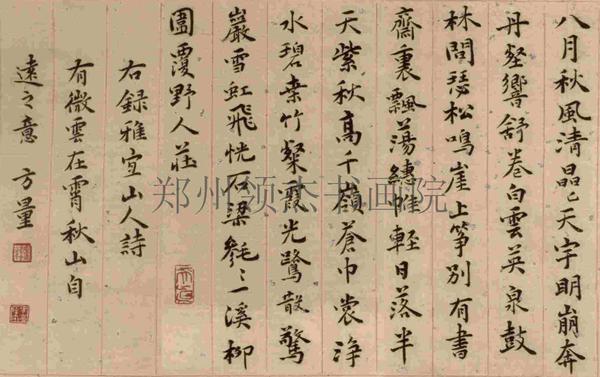 八月秋風清晶〻天宇明崩奔
丹壑響舒卷白雲英泉鼓
林間瑟松鳴崖上筝別有書
齋裏飄蕩繐帷輕日落半
天紫秋高千嶺蒼巾裳淨
水碧桒竹粲霞光鷺散驚
巖雪虹飛恍石梁毿〻一溪柳
圍覆野人莊
右録雅宜山人詩
有微雲在霄秋山自
遠之意 方量
郑州颂杰书画院